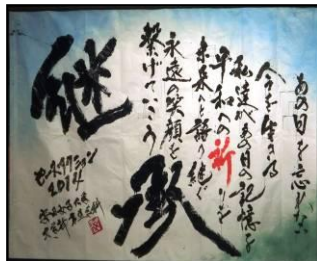 あの日を忘れない
今を生きる
私達があの日の記憶を
平和への祈りを
未来へと語り継ぐ
永遠の笑顔を
繋げていこう
継承
2014